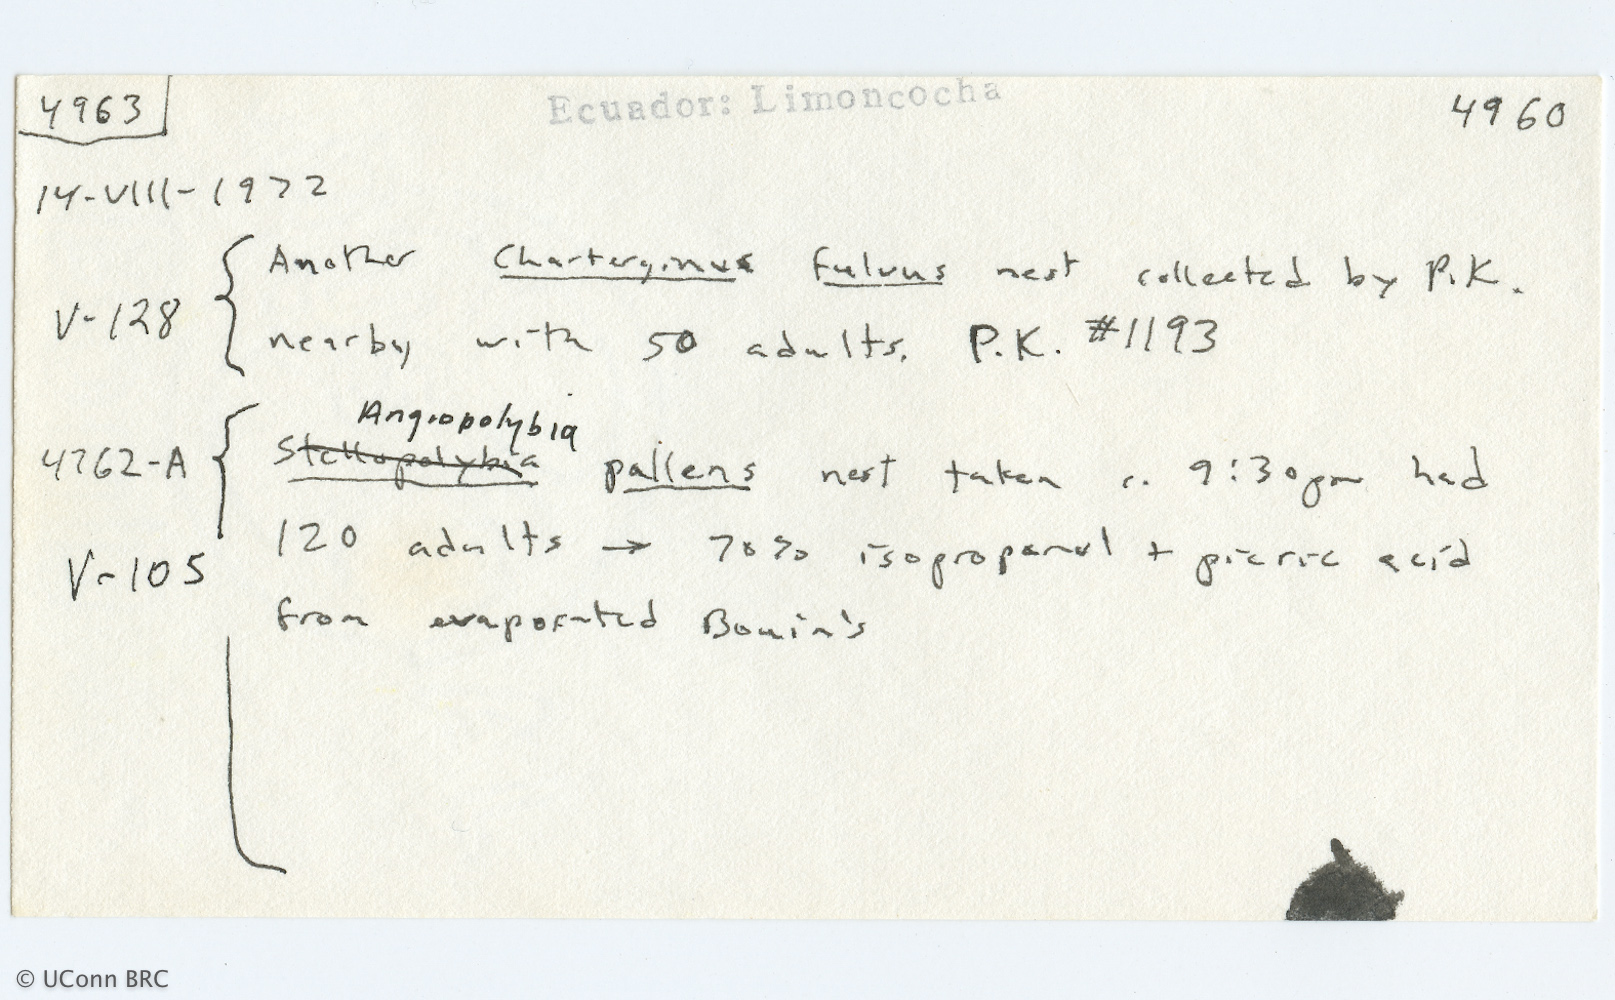 4963 Ecuador: Limoncocha 4960
14-VIII-1972
Another Charterginus fulvus nest collected by P.K.
V-128 nearby with 50 adults. P.K. #1193
Angiopolybia
4762-A Stellopolybia pallens nest taken c. 9:30pm had
120 adults → 70% isopropanol + picric acid
V-105
from evaporated Bouin's
© UConn BRC